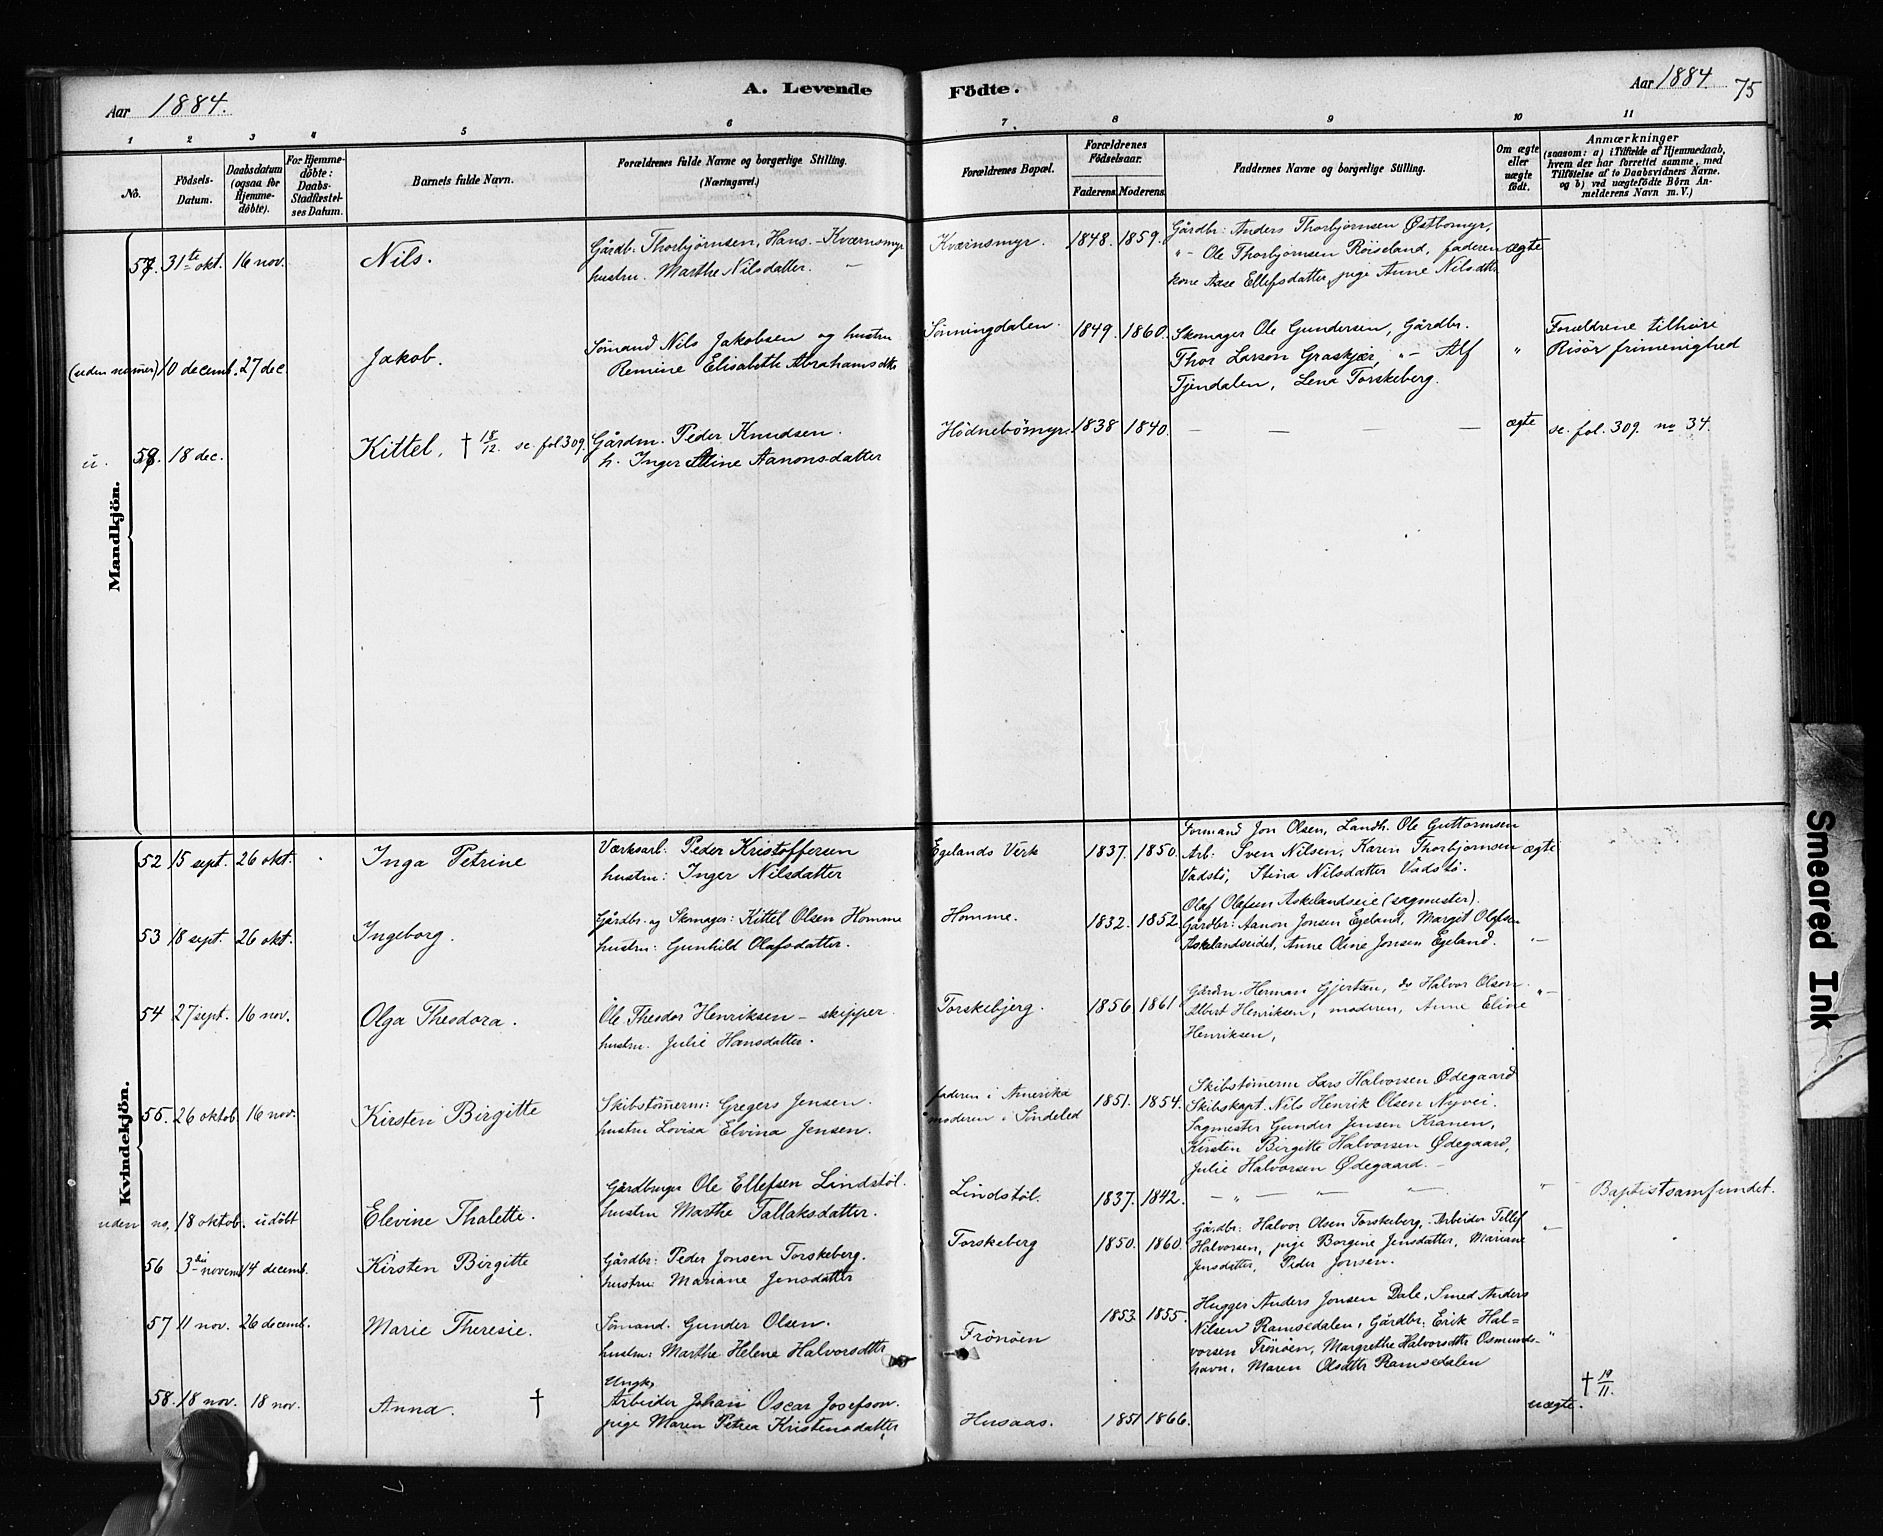 A. Levende Födte.
Aar 1884.
Aar 1884 75
1 2 3 4 5 6 7 8 9 10 11
No.
Födsels-
Datum.
Daabsdatum
(ogsaa for
Hjemme-
döbte).
For Hjemme-
döbte:
Daabs-
Stadfæstel-
ses Datum.
Barnets fulde Navn.
Forældrenes fulde Navne og borgerlige Stilling.
(Næringsvei.)
Forældrenes Bopæl.
Forældrenes
Födselsaar.
Faderens. Moderens.
Faddernes Navne og borgerlige Stilling.
Om ægte
eller
uægte
födt.
Anmærkninger
(saasom: a) i Tilfælde af Hjemmedaab,
hvem der har forrettet samme, med
Tilföielse af to Daabsvidners Navne.
og b) ved uægtefödte Børn An-
melderens Navn m. V.)
Mandkjön.
57. 31te okt. 16 nov. Nils.
Gårdb. Thorbjørnsen, Hans. - Kværnsmyr
hustru. Marthe Nilsdatter. -
Kværnsmyr. 1848. 1859.
Gårdbr: Anders Thorbjørnsen Østbomyr,
" - Ole Thorbjørnsen Røiseland, faderen
kone Aase Ellefsdatter, pige Anne Nilsdttr.
ægte
(uden numer) 10 decemb. 27 dec Jakob.
Sømand Nils Jakobsen og hustru
Remine Elisabeth Abrahamsdttr
Sønningdalen. 1849. 1860.
Skomager Ole Gundersen, Gårdbr.
Thor Larson Graskjær, " - Alf
Tjendalen, Lena Torskeberg.
"
Forældrene tilhøre
Risør frimenighed
u. 58. 18 dec. Kittel, † 18/12 se. fol 309.
Gårdm. Peder Knudsen.
h. Inger Aline Aanonsdatter
Hødnebømyr. 1838 1840. — — — —
ægte
se. fol. 309. no 34.
Kvindekjön.
52 15 sept. 26 okt. Inga Petrine
Værksarb. Peder Kristoffersen
hustru: Inger Nilsdatter
Egelands Verk 1837. 1850.
Formand Jon Olsen, Landh. Ole Guttormsen
Arb: Sven Nilsen, Karen Thorbjørnsen
Vadstø, Stina Nilsdatter Vadstø.
ægte
53 18 sept. 26 okt. Ingeborg.
Gårdbr. og Skomager: Kittel Olsen Homme
hustru: Gunhild Olafsdatter.
Homme. 1832. 1852.
Olaf Olafsen Askelandseie (sagmester).
Gårdbr: Aanon Jonsen Egeland, Margit Olafsen
Askelandseidet, Anne Oline Jonsen Egeland. " -
54 27 sept. 16 nov. Olga Theodora.
Ole Theodor Henriksen - skipper.
hustru. Julie Hansdatter.
Torskebjerg. 1856 1861
Gårdm. Herman Gjertsen, do Halvor Olson.
Albert Henriksen, moderen, Anne Eline
Henriksen,
" -
55. 26 oktob 16 nov. Kirsten Birgitte
Skibstømerm: Gregers Jensen.
hustru Lovisa Elvina Jensen.
faderen i Amerika
moderen i Søndeled
1851. 1854.
Skibstømerm Lars Halvorsen Ødegaard
Skibskapt. Nils Henrik Olsen Nyvei.
Sagmester Gunder Jensen Kranen,
Kirsten Birgitte Halvorsen Ødegaard,
Julie Halvorsen Ødegaard. -
uden no. 18 oktob. udøbt Elevine Thalette.
Gårdbruger Ole Ellefsen Lindstøl.
hustru Marthe Tallaksdatter.
Lindstøl. 1837. 1842. — " — " — "
"
Baptistsamfundet.
56 3die novemb 14 decemb. Kirsten Birgitte
Gårdbr: Peder Jonsen Torskeberg.
hustru: Mariane Jensdatter
Torskeberg 1850. 1860.
Gårdbr: Halvor Olsen Torskeberg, Arbeider Tellef
Halvorsen, pige Borgine Jensdatter, Mariane
Jensdatter, Peder Jonsen.
" -
57 11 nov. 26 decemb. Marie Theresie.
Sømand. Gunder Olsen.
hustru: Marthe Helene Halvorsdttr
Frønøen 1853. 1855.
Hugger Anders Jonsen Dale, Smed Anders
Nilsen Ramsedalen, Gårdbr: Erik Hal-
vorsen Frønøen, Margrethe Halvorsdttr Osmunds-
havn, Maren Olsdttr Ramsedalen
"
58. 18 nov. 18 nov. Anna. †
Ungk.
Arbeider Johan Oscar Josefson.
pige Maren Petrea Kristensdatter,
Husaas. 1851 1866.
uægte.
† 19/11.
Smeared Ink